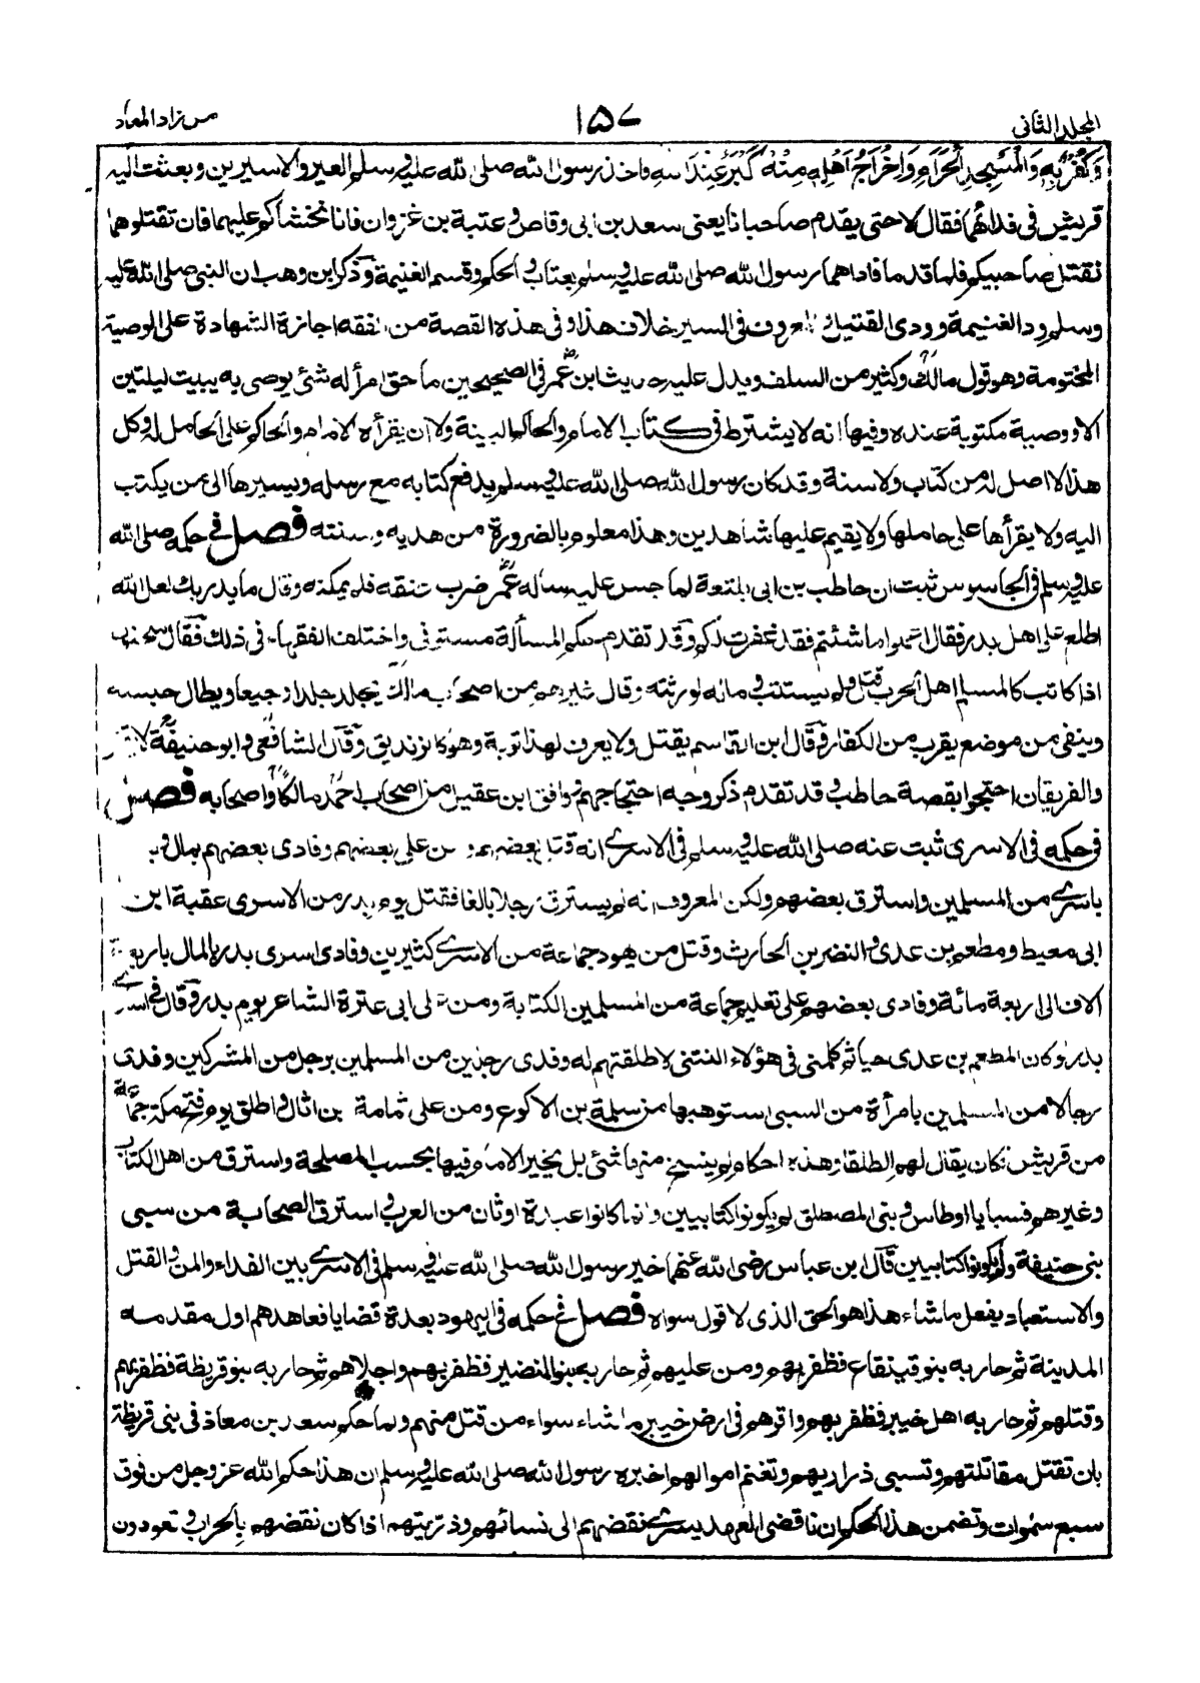 المجلد الثاني
١٥٧
من زاد المعاد
وَكُفْرٌ بِهٖ وَالْمَسْجِدِ الْحَرَامِ وَاِخْرَاجُ اَهْلِهٖ مِنْهُ اَكْبَرُ عِنْدَ اللهِ فاخذ رسول الله صلى الله عليه وسلم العير والاسيرين وبعثت اليه
قريش في فدائهما فقال لا حتى يقدم صاحبانا يعني سعد بن ابي وقاص وعتبة بن غزوان فانا نخشاكم عليهما فان تقتلوهما
نقتل صاحبيكم فلما قدما فاداهما رسول الله صلى الله عليه وسلم بعثاب والحكم وقسم الغنيمة وذكر ابن وهب ان النبي صلى الله عليه
وسلم رد الغنيمة وودى القتيل والمعروف في السير خلاف هذا وفي هذه القصة من الفقه اجازة الشهادة على الوصية
المختومة وهو قول مالك وكثير من السلف ويدل عليه حديث ابن عمر في الصحيحين ما حق امرأ له شئ يوصي به يبيت ليلتين
الا ووصية مكتوبة عنده وفيها انه لا يشترط في كتاب الامام والحاكم البينة ولا ان يقرأه الامام والحاكم على الحامل له وكل
هذا لا اصل له من كتاب ولا سنة وقد كان رسول الله صلى الله عليه وسلم يدفع كتابه مع رسله ويسيرها الى من يكتب
اليه ولا يقرأها على حاملها ولا يقيم عليها شاهدين وهذا معلوم بالضرورة من هديه وسنته فصل في حكمه صلى الله
عليه وسلم في الجاسوس ثبت ان حاطب بن ابي بلتعة لما جس عليه سأله عمر ضرب عنقه فلم يمكنه وقال ما يدريك لعل الله
اطلع على اهل بدر فقال اعملوا ما شئتم فقد غفرت لكم وقد تقدم حكم المسألة مستوفى واختلف الفقهاء في ذلك فقال سحنون
اذا كاتب المسلم اهل الحرب قتل ولم يستتب وماله لورثته وقال غيره من اصحاب مالك يجلد جلدا وجيعا ويطال حبسه
وينفى من موضع يقرب من الكفار وقال ابن القاسم يقتل ولا يعرف لهذا توبة وهو كالزنديق وقال الشافعي وابو حنيفة لا يقتل
والفريقان احتجوا بقصة حاطب وقد تقدم ذكر وجه احتجاجهم ووافق ابن عقيل من اصحاب احمد مالكا واصحابه فصل
في حكمه في الاسرى ثبت عنه صلى الله عليه وسلم في الاسرے انه قتل بعضهم ومن على بعضهم وفادى بعضهم بمال و
باسرے من المسلمين واسترق بعضهم ولكن المعروف انه لم يسترق رجلا بالغا فقتل يوم بدر من الاسرى عقبة ابن
ابي معيط ومطعم بن عدي والنضر بن الحارث وقتل من يهود جماعة من الاسرے كثيرين وفادى اسرى بدر بالمال باربعة
الاف الى اربعة مائة وفادى بعضهم على تعليم جماعة من المسلمين الكتابة ومن على ابي عزة الشاعر يوم بدر وقال في اسرے
بدر لو كان المطعم بن عدي حيا ثم كلمني في هؤلاء النتنى لاطلقتهم له وفدى رجلين من المسلمين برجل من المشركين وفدى
رجالا من المسلمين بامرأة من السبي استوهبها من سلمة بن الاكوع ومن على ثمامة بن اثال واطلق يوم فتح مكة جماعة
من قريش فكان يقال لهم الطلقاء وهذه احكام لم ينسخ منها شئ بل يخير الامام فيها بحسب المصلحة واسترق من اهل الكتاب
وغيرهم فسبايا اوطاس وبني المصطلق لم يكونوا كتابيين وانما كانوا عبدة اوثان من العرب واسترق الصحابة من سبي
بني حنيفة ولم يكونوا كتابيين قال ابن عباس رضي الله عنهما خير رسول الله صلى الله عليه وسلم في الاسرے بين الفداء والمن والقتل
والاستعباد يفعل ما شاء هذا هو الحق الذي لا قول سواه فصل في حكمه في اليهود بعدة قضايا فعاهدهم اول مقدمه
المدينة ثم حاربه بنو قينقاع فظفر بهم ومن عليهم ثم حاربه بنو النضير فظفر بهم واجلاهم ثم حاربه بنو قريظة فظفر بهم
وقتلهم ثم حاربه اهل خيبر فظفر بهم واقرهم في ارض خيبر ما شاء سواء من قتل منهم ولما حكم سعد بن معاذ في بني قريظة
بان تقتل مقاتلتهم وتسبى ذراريهم وتغنم اموالهم اخبره رسول الله صلى الله عليه وسلم ان هذا حكم الله عز وجل من فوق
سبع سموات وتضمن هذا الحكم ان ناقضي العهد يسرے نقضهم الى نسائهم وذريتهم اذا كان نقضهم بالحراب و تعودون